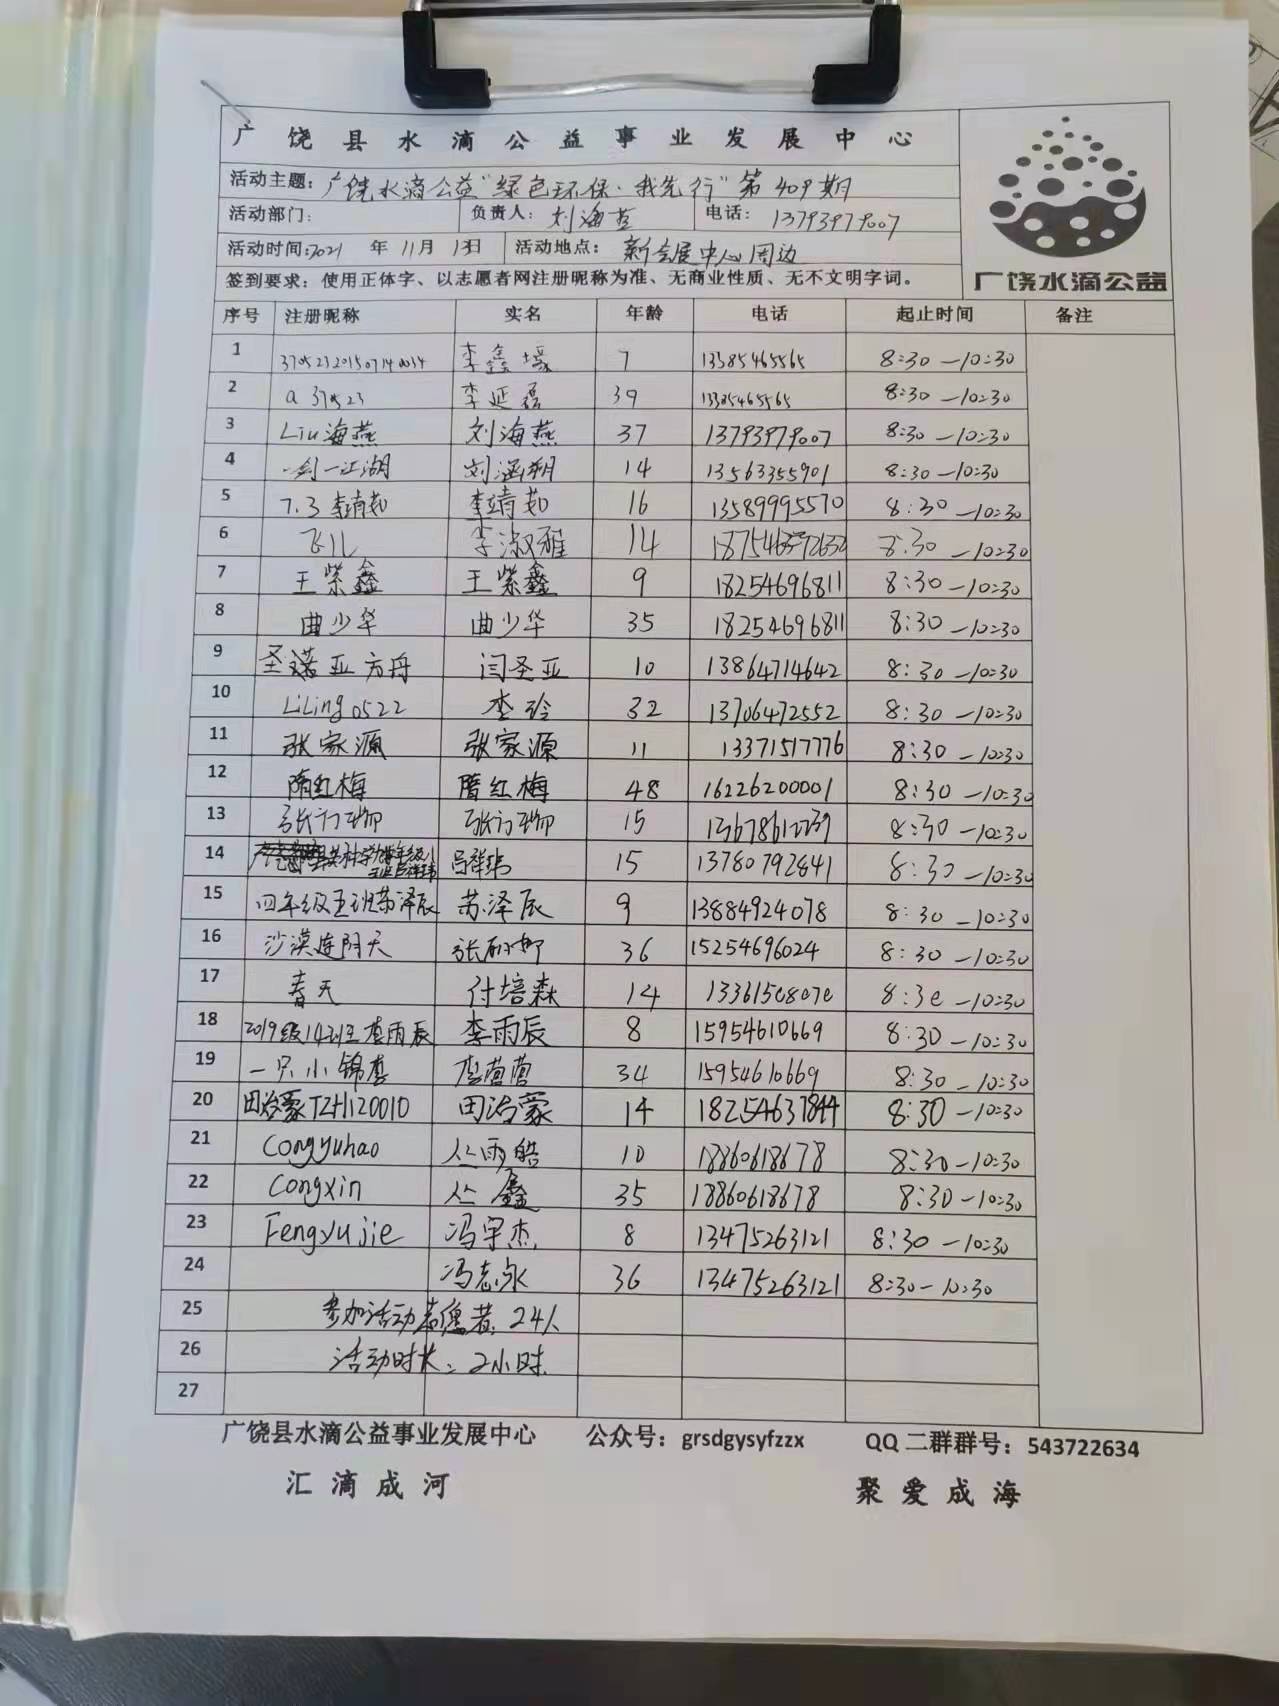 广饶县水滴公益事业发展中心
活动主题：广饶水滴公益"绿色环保·我先行"第409期
活动部门： 负责人：刘海燕 电话：13793979007
活动时间：2021 年 11月 13日 活动地点：新会展中心周边
签到要求：使用正体字、以志愿者网注册昵称为准、无商业性质、无不文明字词。
广饶水滴公益
序号 注册昵称 实名 年龄 电话 起止时间 备注
1 李鑫 7 13385465565 8:30—10:30
2 a 370523 李延磊 39 8:30—10:30
3 Liu海燕 刘海燕 37 13793979007 8:30—10:30
4 一剑一江湖 刘涵朔 14 13563355901 8:30—10:30
5 7.3李靖茹 李靖茹 16 13589995570 8:30—10:30
6 飞儿 李淑雅 14 8:30—10:30
7 王紫鑫 王紫鑫 9 18254696811 8:30—10:30
8 曲少华 曲少华 35 18254696811 8:30—10:30
9 圣诺亚方舟 闫圣亚 10 13864714642 8:30—10:30
10 LiLing0522 李玲 32 13706472552 8:30—10:30
11 张家源 张家源 11 13371517776 8:30—10:30
12 隋红梅 隋红梅 48 16226200001 8:30—10:30
13 15 8:30—10:30
14 吕祥玮 15 13780792841 8:30—10:30
15 四年级五班苏泽辰 苏泽辰 9 13884924078 8:30—10:30
16 沙漠连阴天 36 15254696024 8:30—10:30
17 春天 付培森 14 13361508070 8:30—10:30
18 2019级14班李雨辰 李雨辰 8 15954610669 8:30—10:30
19 一只小锦李 李营营 34 15954610669 8:30—10:30
20 田治蒙TZH120010 田治蒙 14 18254637844 8:30—10:30
21 Congyuhao 丛雨皓 10 18860618678 8:30—10:30
22 Congxin 丛鑫 35 18860618678 8:30—10:30
23 Fengyujie 冯宇杰 8 13475263121 8:30—10:30
24 冯志永 36 13475263121 8:30—10:30
25 参加活动志愿者：24人
26 活动时长：2小时.
27
广饶县水滴公益事业发展中心 公众号：grsdgysyfzzx QQ二群群号：543722634
汇滴成河 聚爱成海